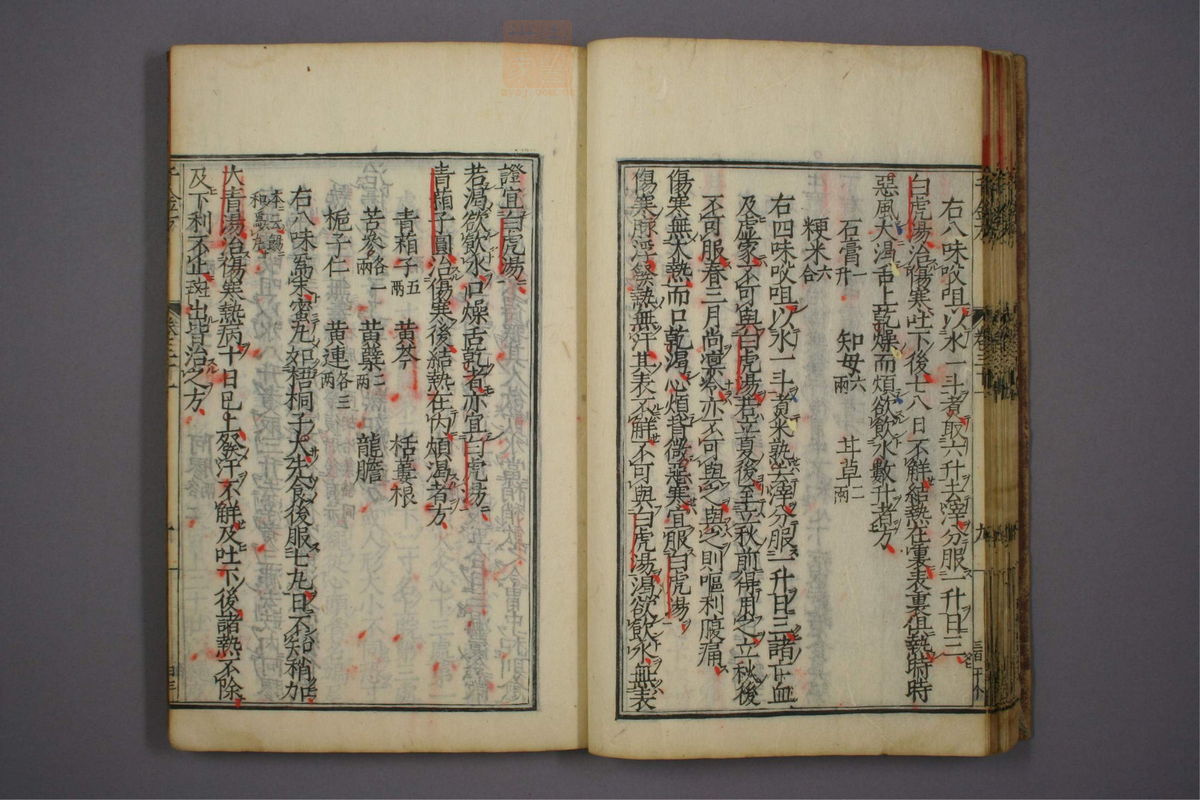 右八味㕮咀以水一斗煮取六升去滓分服一升日三
白虎湯治傷寒吐下後七八日不解結熱在裏表裏俱熱時時
惡風大渴舌上乾燥而煩欲飲水數升者方
石膏一升 知母六兩 甘草二兩
粳米六合
右四味㕮咀以水一斗煮米熟去滓分服一升日三諸亡血
及虛家不可與白虎湯若立夏後至立秋前得用之立秋後
不可服春三月尚凛冷亦不可與之與之則嘔利腹痛
傷寒無大熱而口乾渴心煩背微惡寒宜服白虎湯
傷寒脉浮發熱無汗其表不解不可與白虎湯渴欲飲水無表
證宜白虎湯
若渴欲飲水口燥舌乾者亦宜白虎湯
青葙子圓治傷寒後結熱在內煩渴者方
青葙子五兩 黃芩 栝蔞根
苦參各一兩 黃蘗二兩 龍膽
梔子仁 黃連各三兩
右八味為末蜜丸如梧桐子大先食後服七九日三不知稍加
本云
大青湯治傷寒熱病十日已上發汗不解及吐下後諸熱不除
及下利不止斑出皆治之方
九